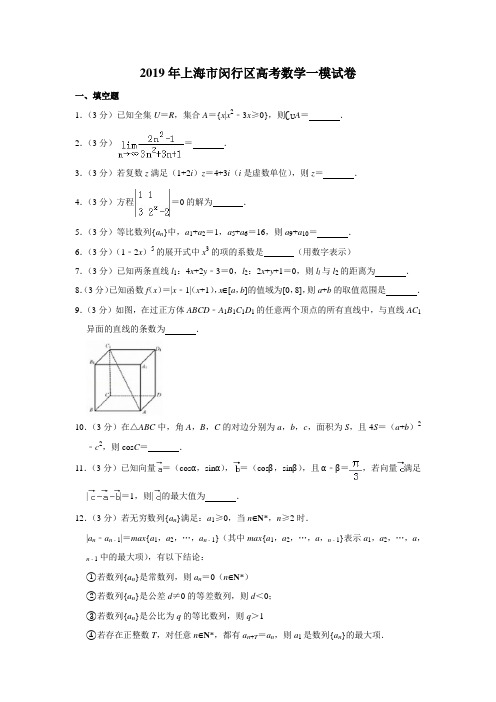 2019 年上海市闵行区高考数学一模试卷
一、填空题
1.(3 分)已知全集 U=R,集合 A={x|x²﹣3x≥0},则∁UA= .
2.(3 分) lim n→∞ (2n²-1)/(3n²+3n+1) = .
3.(3 分)若复数 z 满足(1+2i)z=4+3i(i 是虚数单位),则 z= .
4.(3 分)方程 |1 1; 3 2ˣ-2| =0 的解为 .
5.(3 分)等比数列{aₙ}中,a₁+a₂=1,a₅+a₆=16,则 a₉+a₁₀= .
6.(3 分)(1﹣2x)⁵ 的展开式中 x³ 的项的系数是 (用数字表示)
7.(3 分)已知两条直线 l₁:4x+2y﹣3=0,l₂:2x+y+1=0,则 l₁ 与 l₂ 的距离为 .
8.(3 分)已知函数 f(x)=|x﹣1|(x+1),x∈[a,b]的值域为[0,8],则 a+b 的取值范围是 .
9.(3 分)如图,在过正方体 ABCD﹣A₁B₁C₁D₁ 的任意两个顶点的所有直线中,与直线 AC₁
异面的直线的条数为 .
C₁ D₁
B₁ A₁
C D
B A
10.(3 分)在△ABC 中,角 A,B,C 的对边分别为 a,b,c,面积为 S,且 4S=(a+b)²
﹣c²,则 cosC= .
11.(3 分)已知向量a⃗=(cosα,sinα),b⃗=(cosβ,sinβ),且 α﹣β=π/3,若向量c⃗满足
|c⃗-a⃗-b⃗|=1,则|c⃗|的最大值为 .
12.(3 分)若无穷数列{aₙ}满足:a₁≥0,当 n∈N*,n≥2 时.
|aₙ﹣aₙ₋₁|=max{a₁,a₂,…,aₙ₋₁}(其中 max{a₁,a₂,…,a,ₙ₋₁}表示 a₁,a₂,…,a,
ₙ₋₁ 中的最大项),有以下结论:
①若数列{aₙ}是常数列,则 aₙ=0(n∈N*)
②若数列{aₙ}是公差 d≠0 的等差数列,则 d<0;
③若数列{aₙ}是公比为 q 的等比数列,则 q>1
④若存在正整数 T,对任意 n∈N*,都有 aₙ₊T=aₙ,则 a₁ 是数列{aₙ}的最大项.